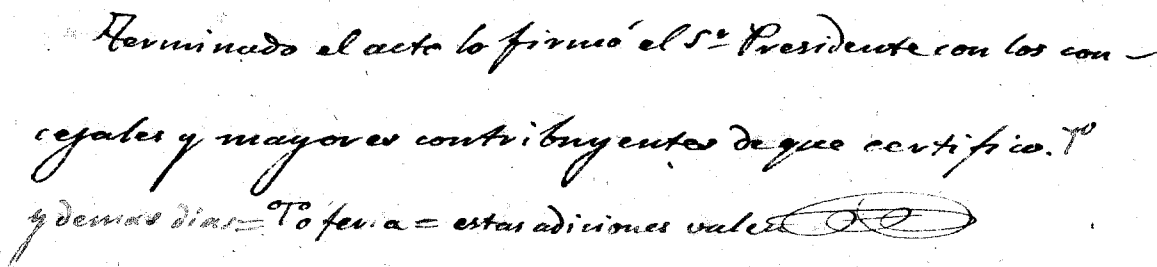 Terminado el acto lo firmó el Sr Presidente con los con-
cejales y mayores contribuyentes de que certifico. To
y demas dias = To feria = estas adiciones valen